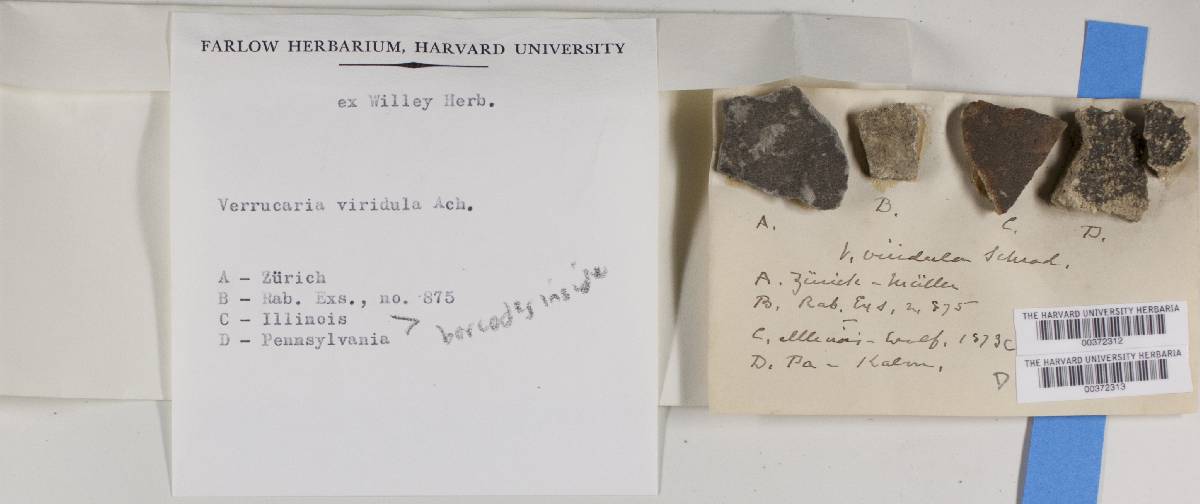 FARLOW HERBARIUM, HARVARD UNIVERSITY
ex Willey Herb.
Verrucaria viridula Ach.
A - Zürich
B - Rab. Exs., no. 875
C - Illinois
D - Pennsylvania
> barcodes inside
A.
B.
C.
D.
V. viridula Schrad.
A. Zürich - Müller
B. Rab. Exs, n. 875
C. Illinois - Wolf. 1873
D. Pa - Kalm.
C
THE HARVARD UNIVERSITY HERBARIA
00372312
D
THE HARVARD UNIVERSITY HERBARIA
00372313